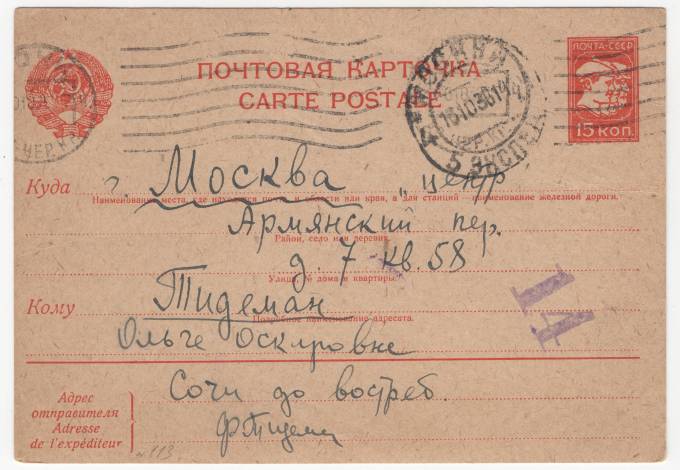 ПОЧТА-СССР
ПОЧТОВАЯ КАРТОЧКА
CARTE POSTALE
15 КОП.
Куда г. Москва „ центр
Наименование места, где находится почта, и области или края, а для станций - наименование железной дороги.
Армянский пер.
Район, село или деревня.
д. 7 кв. 58
Улица, № дома и квартиры.
Кому Тидеман
Подробное наименование адресата.
Ольге Оскаровне
14
Адрес отправителя
Adresse de l'expéditeur
Сочи до востреб.